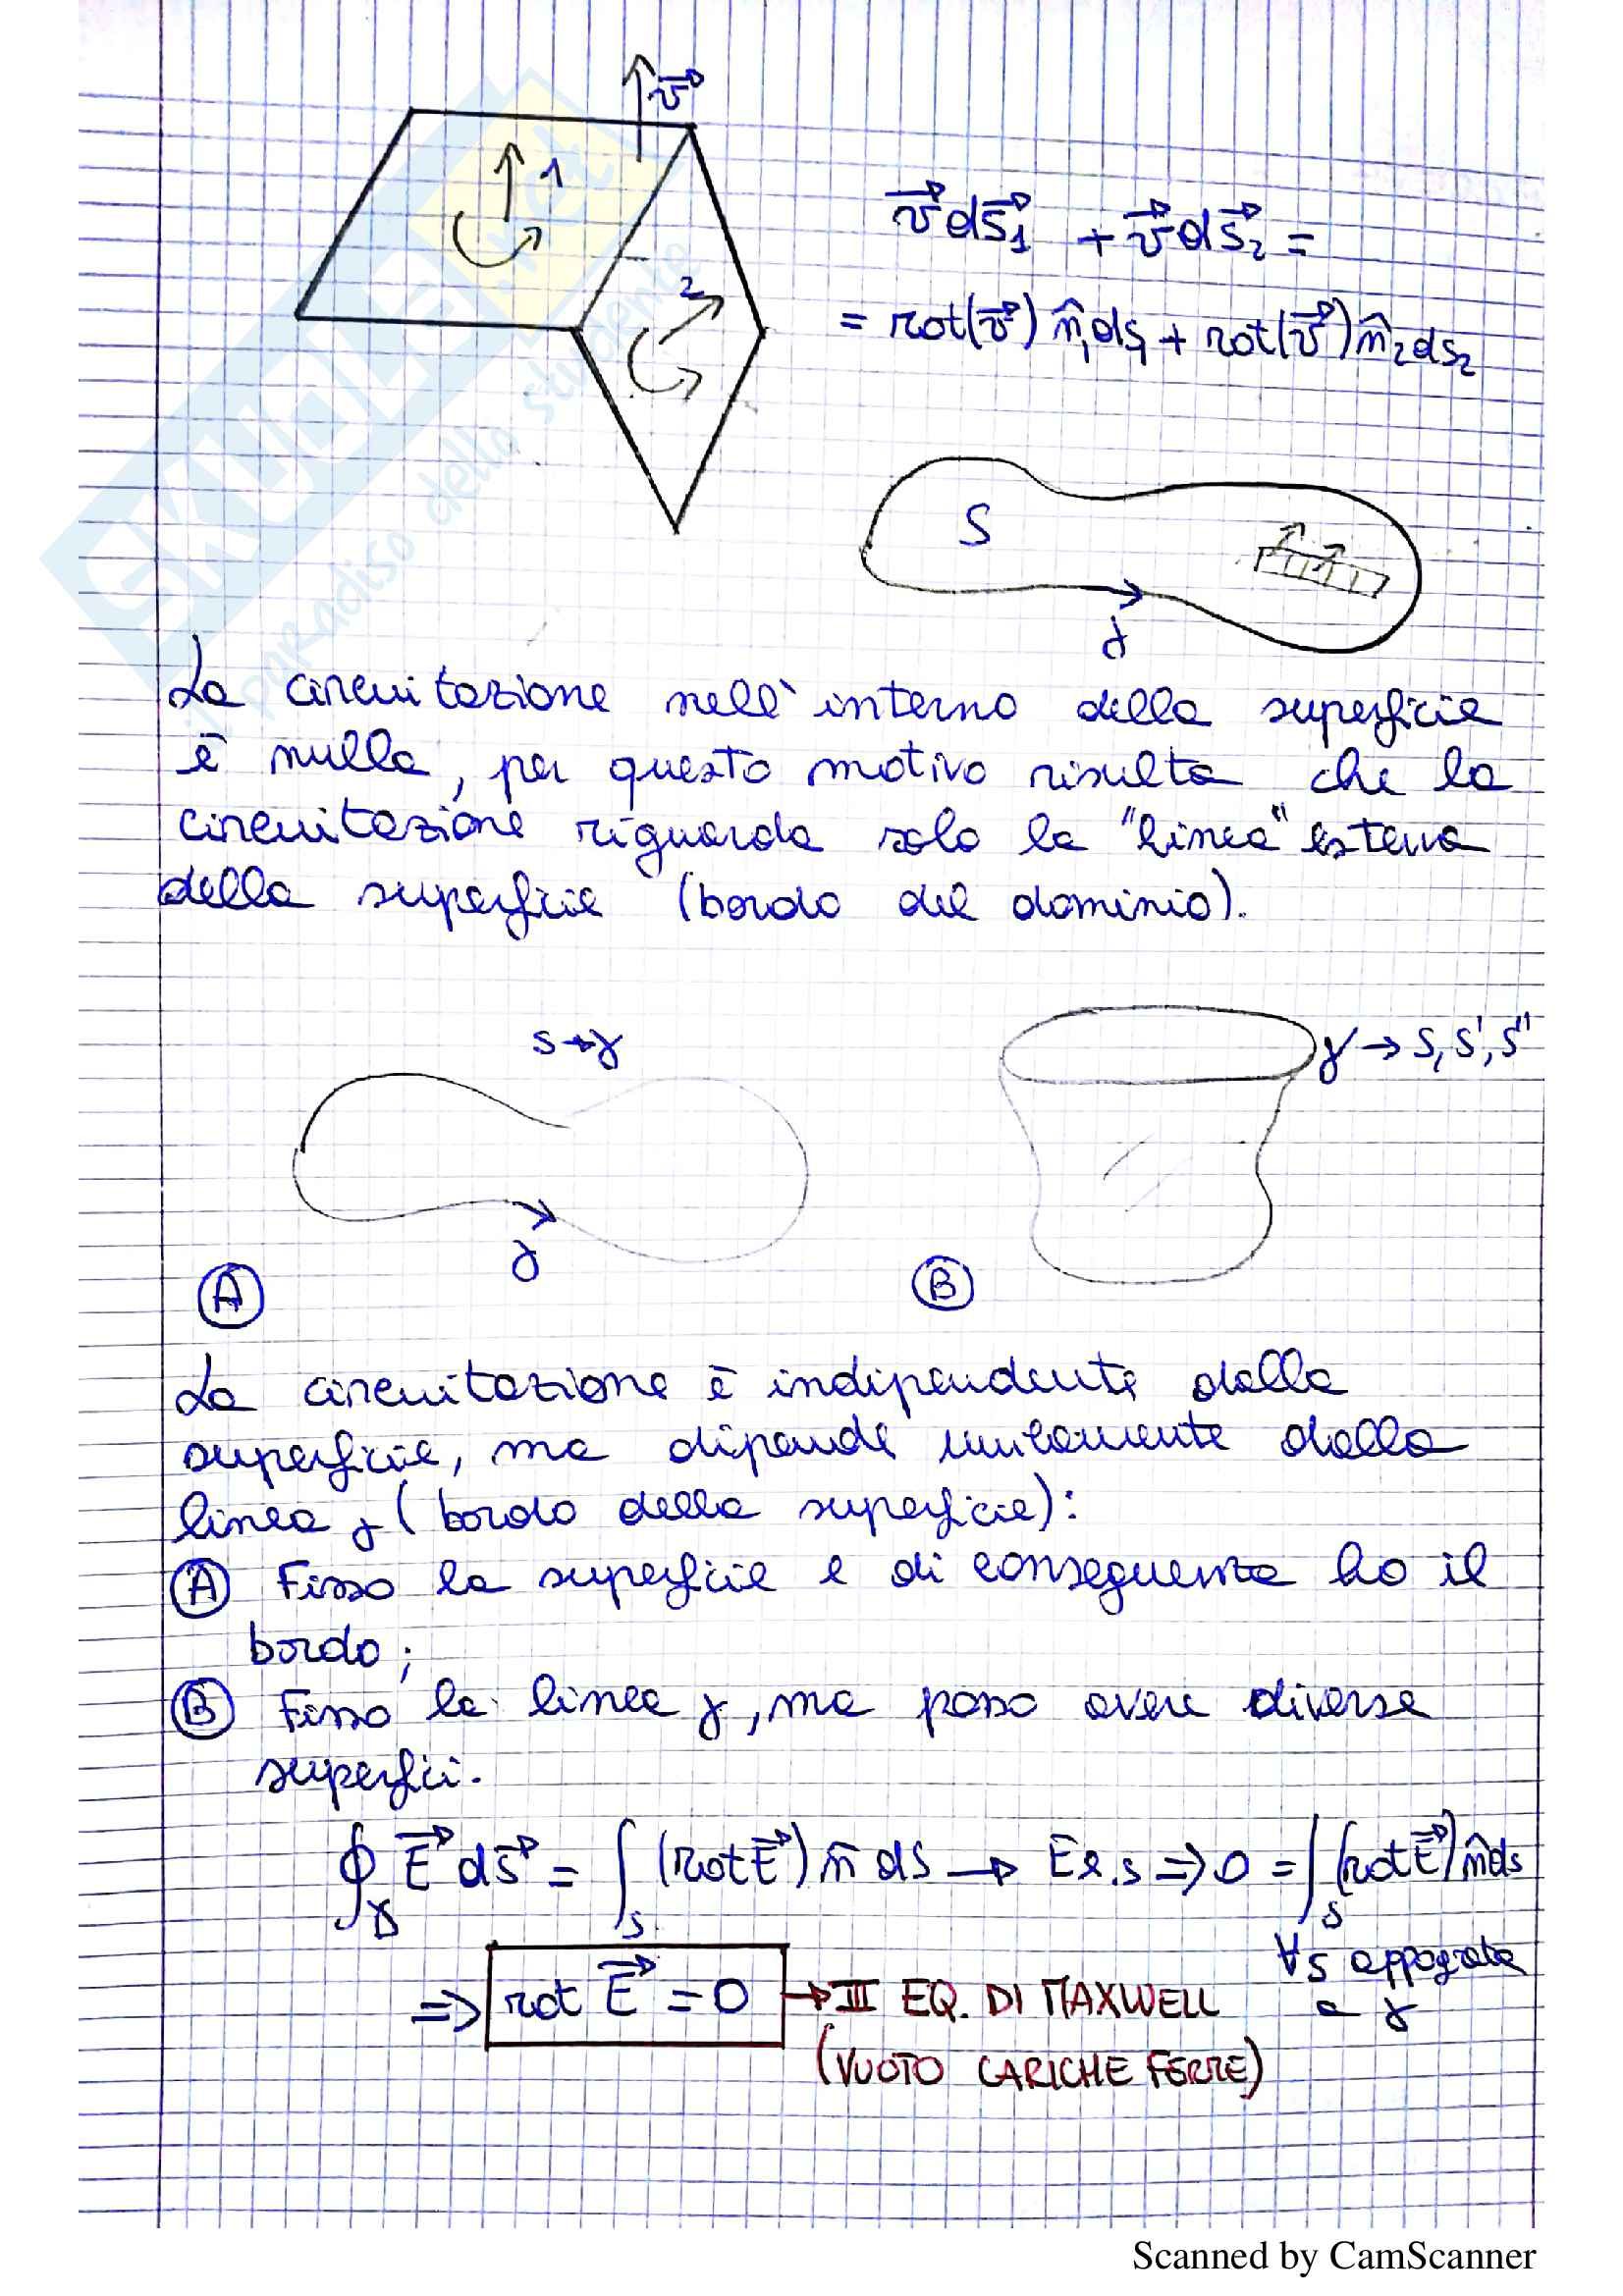 v⃗
1
2
v⃗ ds⃗₁ + v⃗ ds⃗₂ =
= rot(v⃗) n̂₁ds₁ + rot(v⃗) n̂₂ds₂
S
γ
La circuitazione nell'interno della superficie
è nulla, per questo motivo risulta che la
circuitazione riguarda solo la "linea" esterna
della superficie (bordo del dominio).
s→γ
γ→S, S', S''
γ
A
B
La circuitazione è indipendente dalla
superficie, ma dipende unicamente dalla
linea γ (bordo della superficie):
A Fisso la superficie e di conseguenza ho il
bordo;
B Fisso la linea γ, ma posso avere diverse
superfici.
∮γ E⃗ ds⃗ = ∫s (rot E⃗) n̂ dS → El.s ⇒ 0 = ∫s (rot E⃗) n̂ ds
∀s appoggiata
a γ
⇒ rot E⃗ = 0 → III EQ. DI MAXWELL
(VUOTO CARICHE FERME)
SKUOLA.net
il paradiso dello studente
Scanned by CamScanner